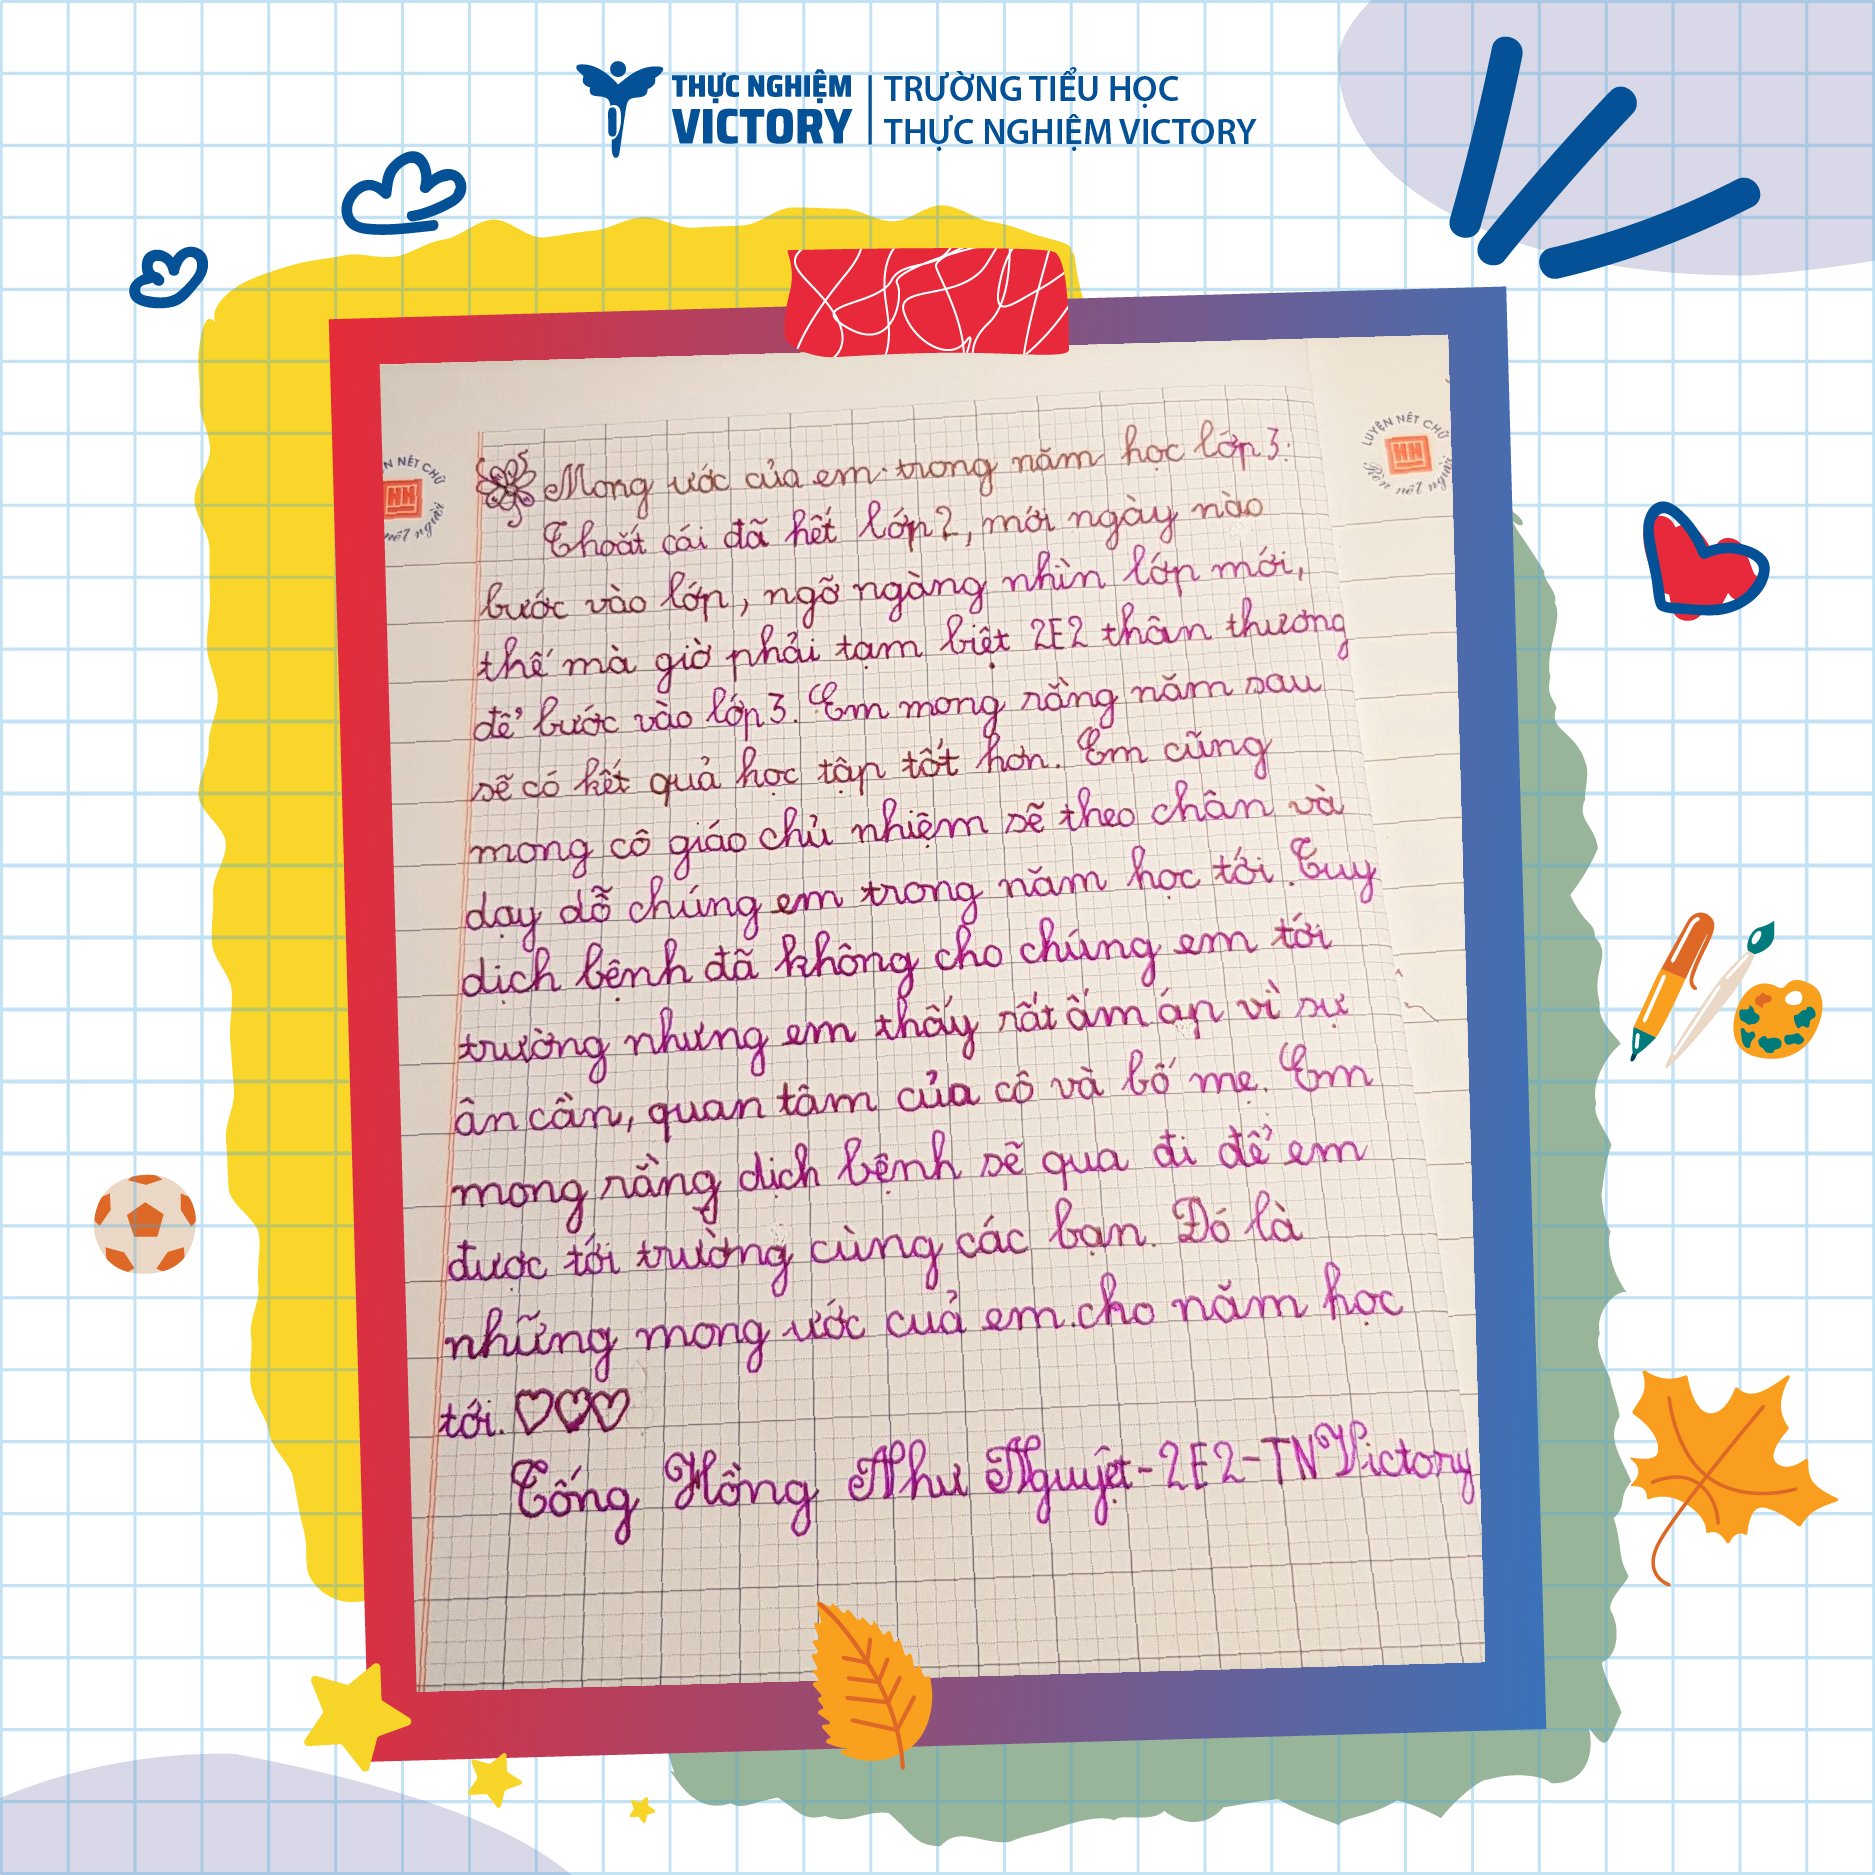 THỰC NGHIỆM
VICTORY
TRƯỜNG TIỂU HỌC
THỰC NGHIỆM VICTORY
N NÉT CHỮ
HH
nét người
LUYỆN NÉT CHỮ
HH
Rèn nết người
Mong ước của em trong năm học lớp 3.
Thoắt cái đã hết lớp 2, mới ngày nào
bước vào lớp, ngỡ ngàng nhìn lớp mới,
thế mà giờ phải tạm biệt 2E2 thân thương
để bước vào lớp 3. Em mong rằng năm sau
sẽ có kết quả học tập tốt hơn. Em cũng
mong cô giáo chủ nhiệm sẽ theo chân và
dạy dỗ chúng em trong năm học tới. Tuy
dịch bệnh đã không cho chúng em tới
trường nhưng em thấy rất ấm áp vì sự
ân cần, quan tâm của cô và bố mẹ. Em
mong rằng dịch bệnh sẽ qua đi để em
được tới trường cùng các bạn. Đó là
những mong ước cuả em cho năm học
tới. ♡♡♡
Tống Hồng Như Nguyệt-2E2-TN Victory